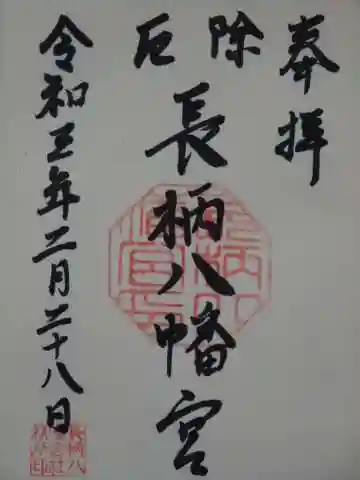 奉拝
除厄
長柄八幡宮
令和三年二月二十八日